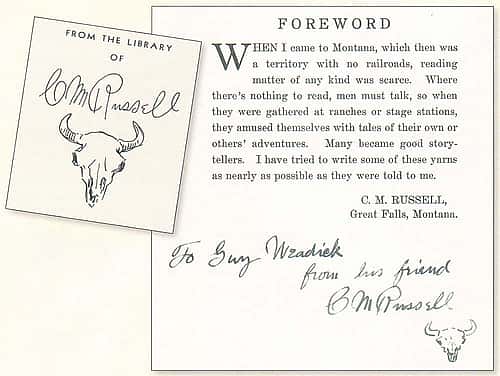 FROM THE LIBRARY
OF
C M Russell
FOREWORD
WHEN I came to Montana, which then was
a territory with no railroads, reading
matter of any kind was scarce. Where
there's nothing to read, men must talk, so when
they were gathered at ranches or stage stations,
they amused themselves with tales of their own or
others' adventures. Many became good story-
tellers. I have tried to write some of these yarns
as nearly as possible as they were told to me.
C. M. RUSSELL,
Great Falls, Montana.
To Guy Weadick
from his friend
C M Russell